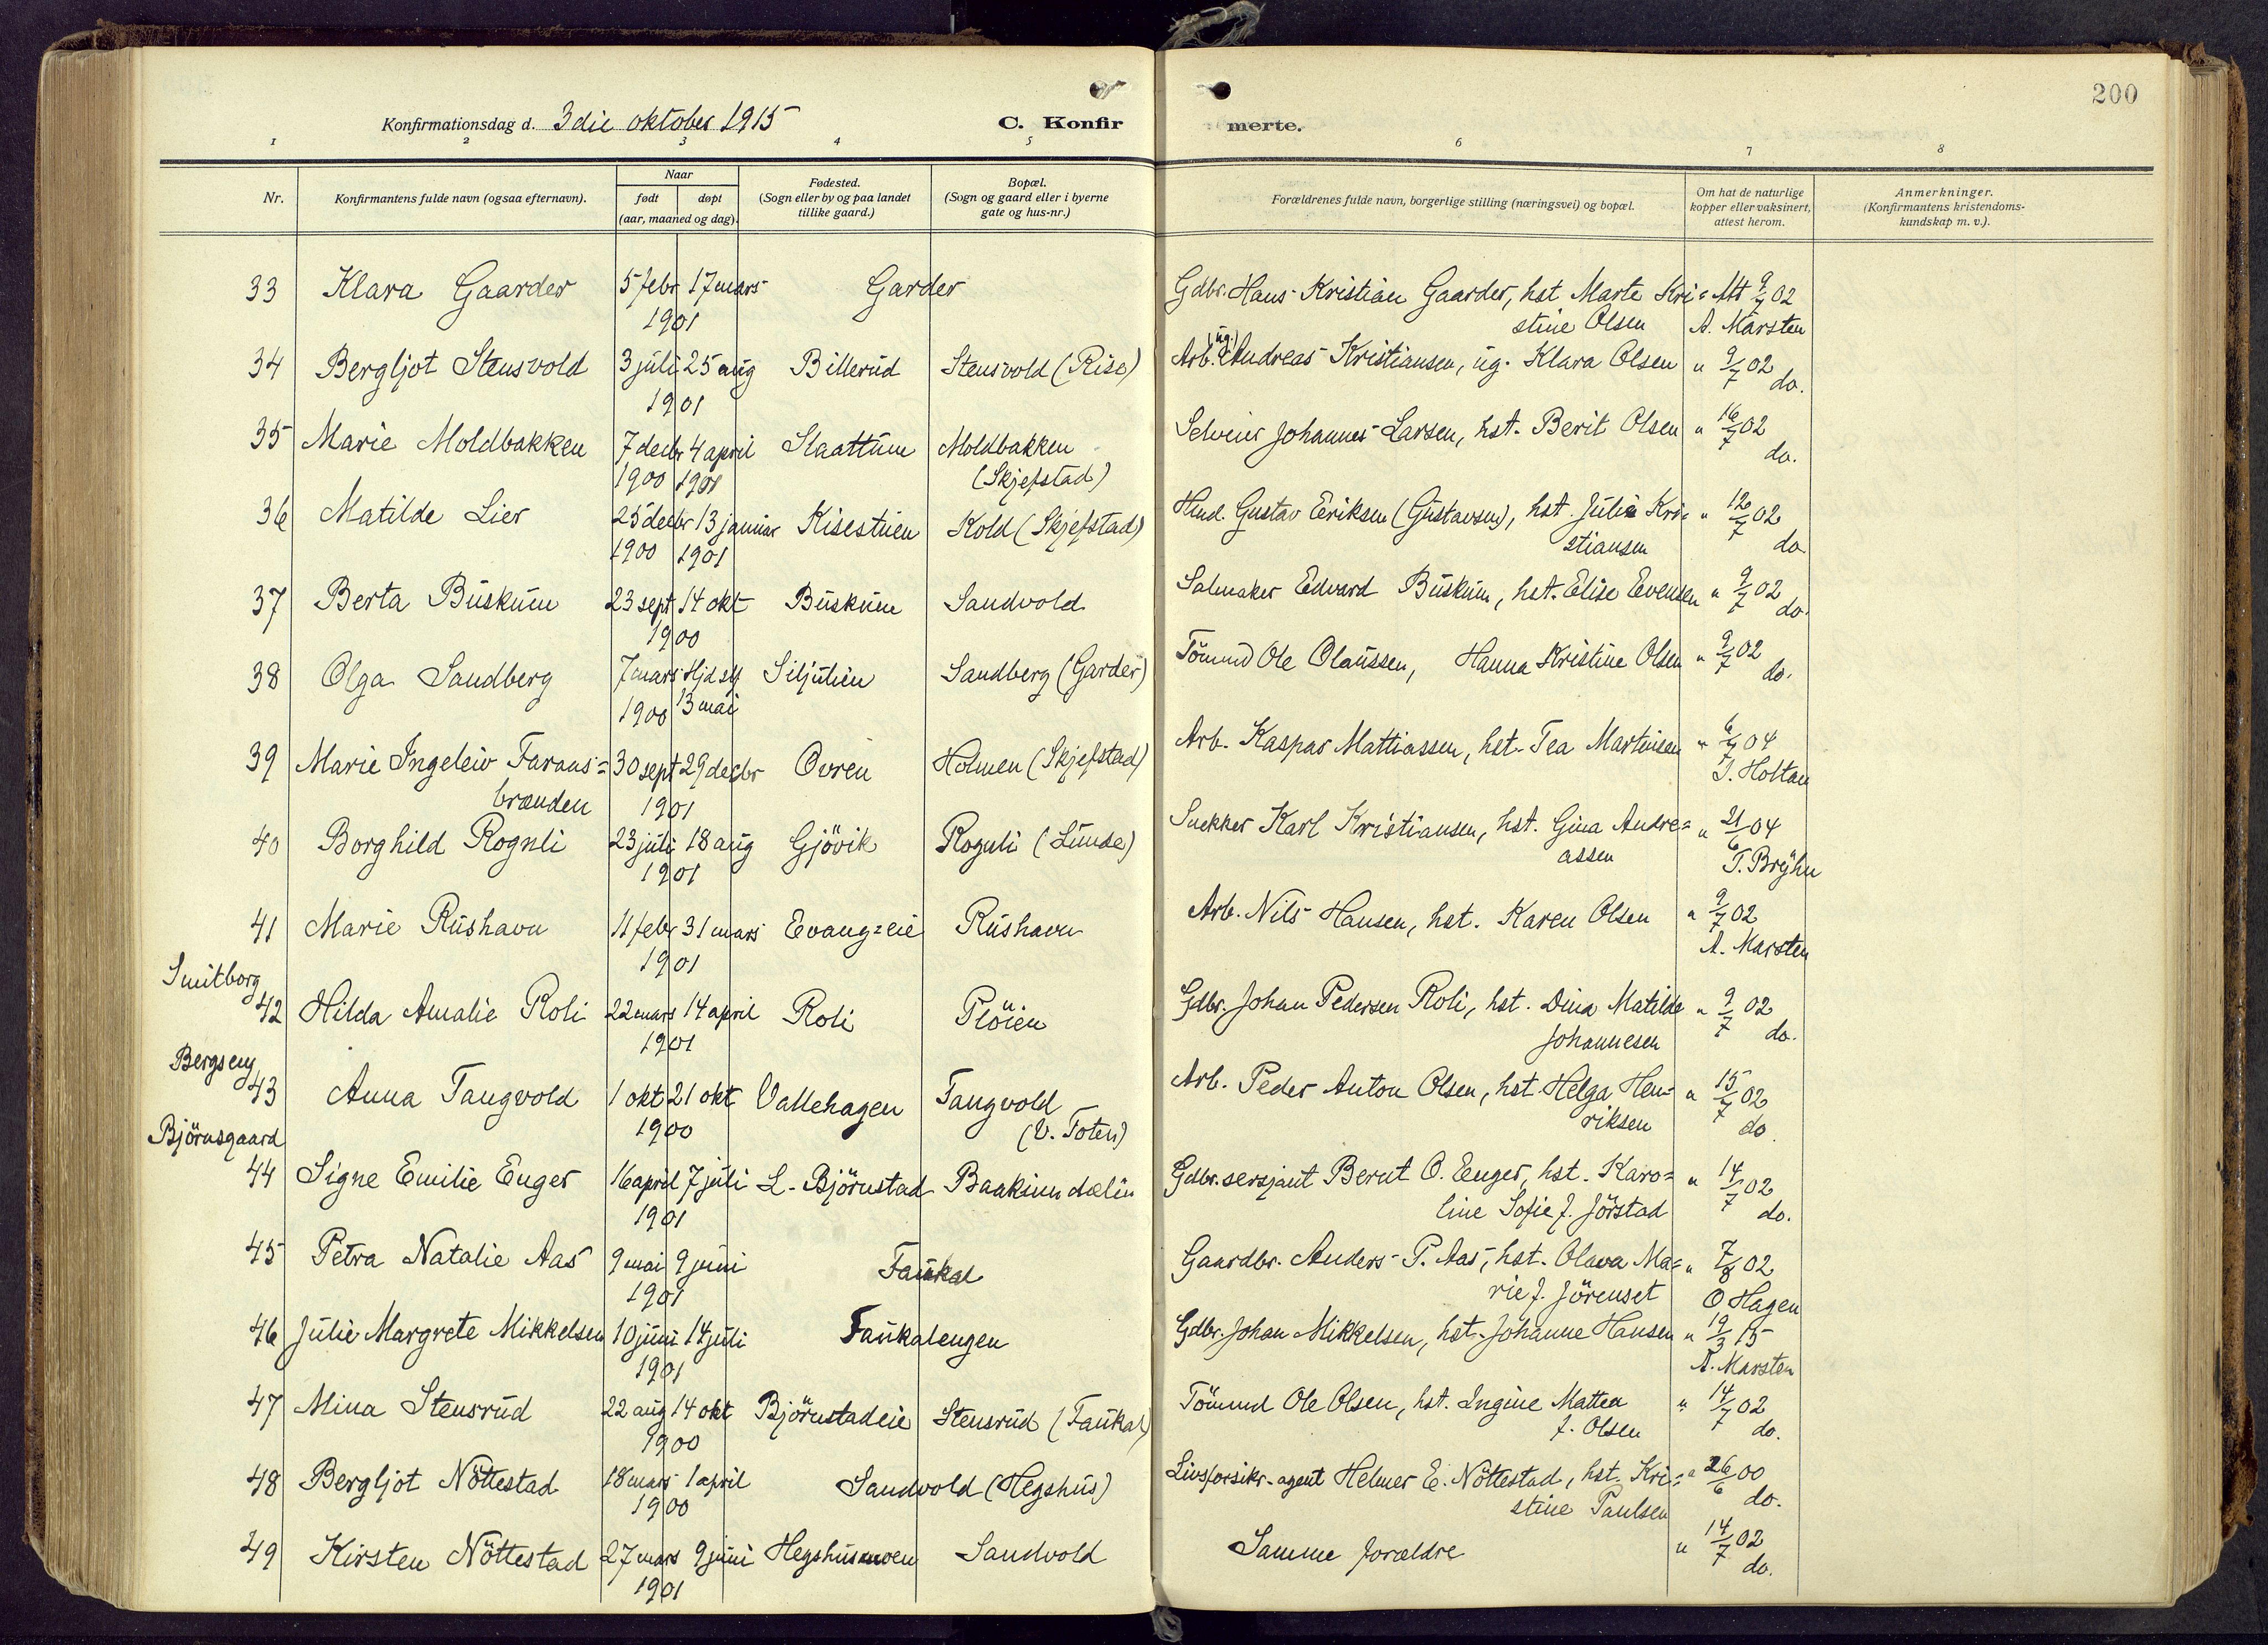 200
Konfirmationsdag d. 3die oktober 1915 C. Konfirmerte.
1 2 3 4 5 6 7 8
Nr. Konfirmantens fulde navn (ogsaa efternavn). Naar født døpt (aar, maaned og dag). Fødested. (Sogn eller by og paa landet tillike gaard.) Bopæl. (Sogn og gaard eller i byerne gate og hus-nr.) Forældrenes fulde navn, borgerlige stilling (næringsvei) og bopæl. Om hat de naturlige kopper eller vaksinert, attest herom. Anmerkninger. (Konfirmantens kristendoms-kundskap m. v.).
33 Klara Gaarder 5 febr 17 mars Garder Gdbr. Hans Kristian Gaarder, hst Marte Kri= Att 9/7 02
1901 stine Olsen A. Marsten
34 Bergljot Stensvold 3 juli 25 aug Billerud Stensvold (Rise) Arb. (ug.) Andreas Kristiansen, ug. Klara Olsen " 9/7 02
1901 do.
35 Marie Moldbakken 7 decbr 4 april Slaattum Moldbakken Selveier Johannes Larsen, hst. Berit Olsen " 16/7 02
1900 1901 (Skjefstad) do.
36 Matilde Lier 25 decbr 13 januar Kisestuen Kold (Skjefstad) Hmd. Gustav Eriksen (Gustavsen), hst. Julie Kri= " 12/7 02
1900 1901 stiansen do.
37 Berta Buskum 23 sept 14 okt Buskum Sandvold Salmaker Edvard Buskum, hst. Elise Evensen " 9/7 02
1900 do.
38 Olga Sandberg 7 mars Hjd Siljulien Sandberg (Garder) Tömmd Ole Olaussen, Hanna Kristine Olsen " 9/7 02
1900 13 mai do.
39 Marie Ingeleiv Farans= 30 sept 29 decbr Ovren Holmen (Skjefstad) Arb. Kaspar Mattiassen, hst. Tea Martinsen " 6/7 04
brænden 1901 J. Holtan
40 Borghild Rognli 23 juli 18 aug Gjövik Rognli (Lunde) Snekker Karl Kristiansen, hst. Gina Andre= " 21/6 04
1901 assen T. Bryhn
41 Marie Rushavn 11 febr 31 mars Evang=eie Rushavn Arb. Nils Hansen, hst. Karen Olsen " 9/7 02
1901 A. Marsten
Smitborg
42 Hilda Amalie Roli 22 mars 14 april Roli Plöien Gdbr. Johan Pedersen Roli, hst. Dina Matilde " 9/7 02
1901 Johannesen do.
Bergseng
43 Anna Tangvold 1 okt 21 okt Vallehagen Tangvold Arb. Peder Anton Olsen, hst. Helga Hen= " 15/7 02
1900 (V. Toten) riksen do.
Björnsgaard
44 Signe Emilie Enger 16 april 7 juli L. Björnstad Baaksundælin Gdbr. sersjant Bernt O. Enger, hst. Karo= " 14/7 02
1901 line Sofie J. Jörstad do.
45 Petra Natalie Aas 9 mai 9 juni Faukal Gaardbr. Anders P. Aas, hst. Olava Ma= " 7/8 02
1901 rie J. Jörenset O Hagen
46 Julie Margrete Mikkelsen 10 juni 14 juli Faukalengen Gdbr. Johan Mikkelsen, hst. Johanne Hansen " 19/3 15
1901 A. Marsten
47 Mina Stensrud 22 aug 14 okt Björnstadeie Stensrud (Faukal) Tömmd Ole Olsen, hst. Ingine Mattea " 14/7 02
1900 J. Olsen do.
48 Bergljot Nöttestad 18 mars 1 april Sandvold (Hegshus) Livsforsikr.agent Helmer E. Nöttestad, hst. Kri= " 26/6 00
1900 stine Paulsen do.
49 Kirsten Nöttestad 27 mars 9 juni Hegshusmoen Sandvold Samme forældre " 14/7 02
1901 do.